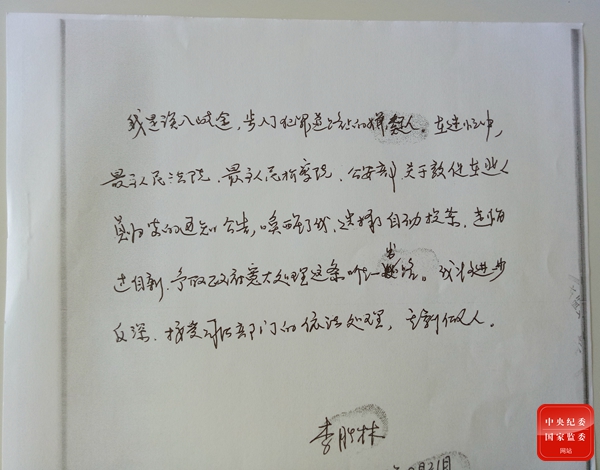 我是误入歧途，步入犯罪道路上的人。在中，
最高人民法院、最高人民检察院、公安部关于敦促在逃人
员归案的通知公告，唤醒了我，选择了自动投案，悔
过自新、争取政府宽大处理这条唯一出路。我将进步
反深、接受司法部门的依法处理，重新做人。
李胜林
中央纪委
国家监委
网站